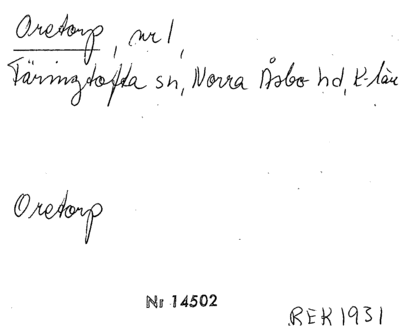 Oretorp, nr 1,
Färingtofta sn, Norra Åsbo hd, K-län
Oretorp
Nr 14502
REK 1931